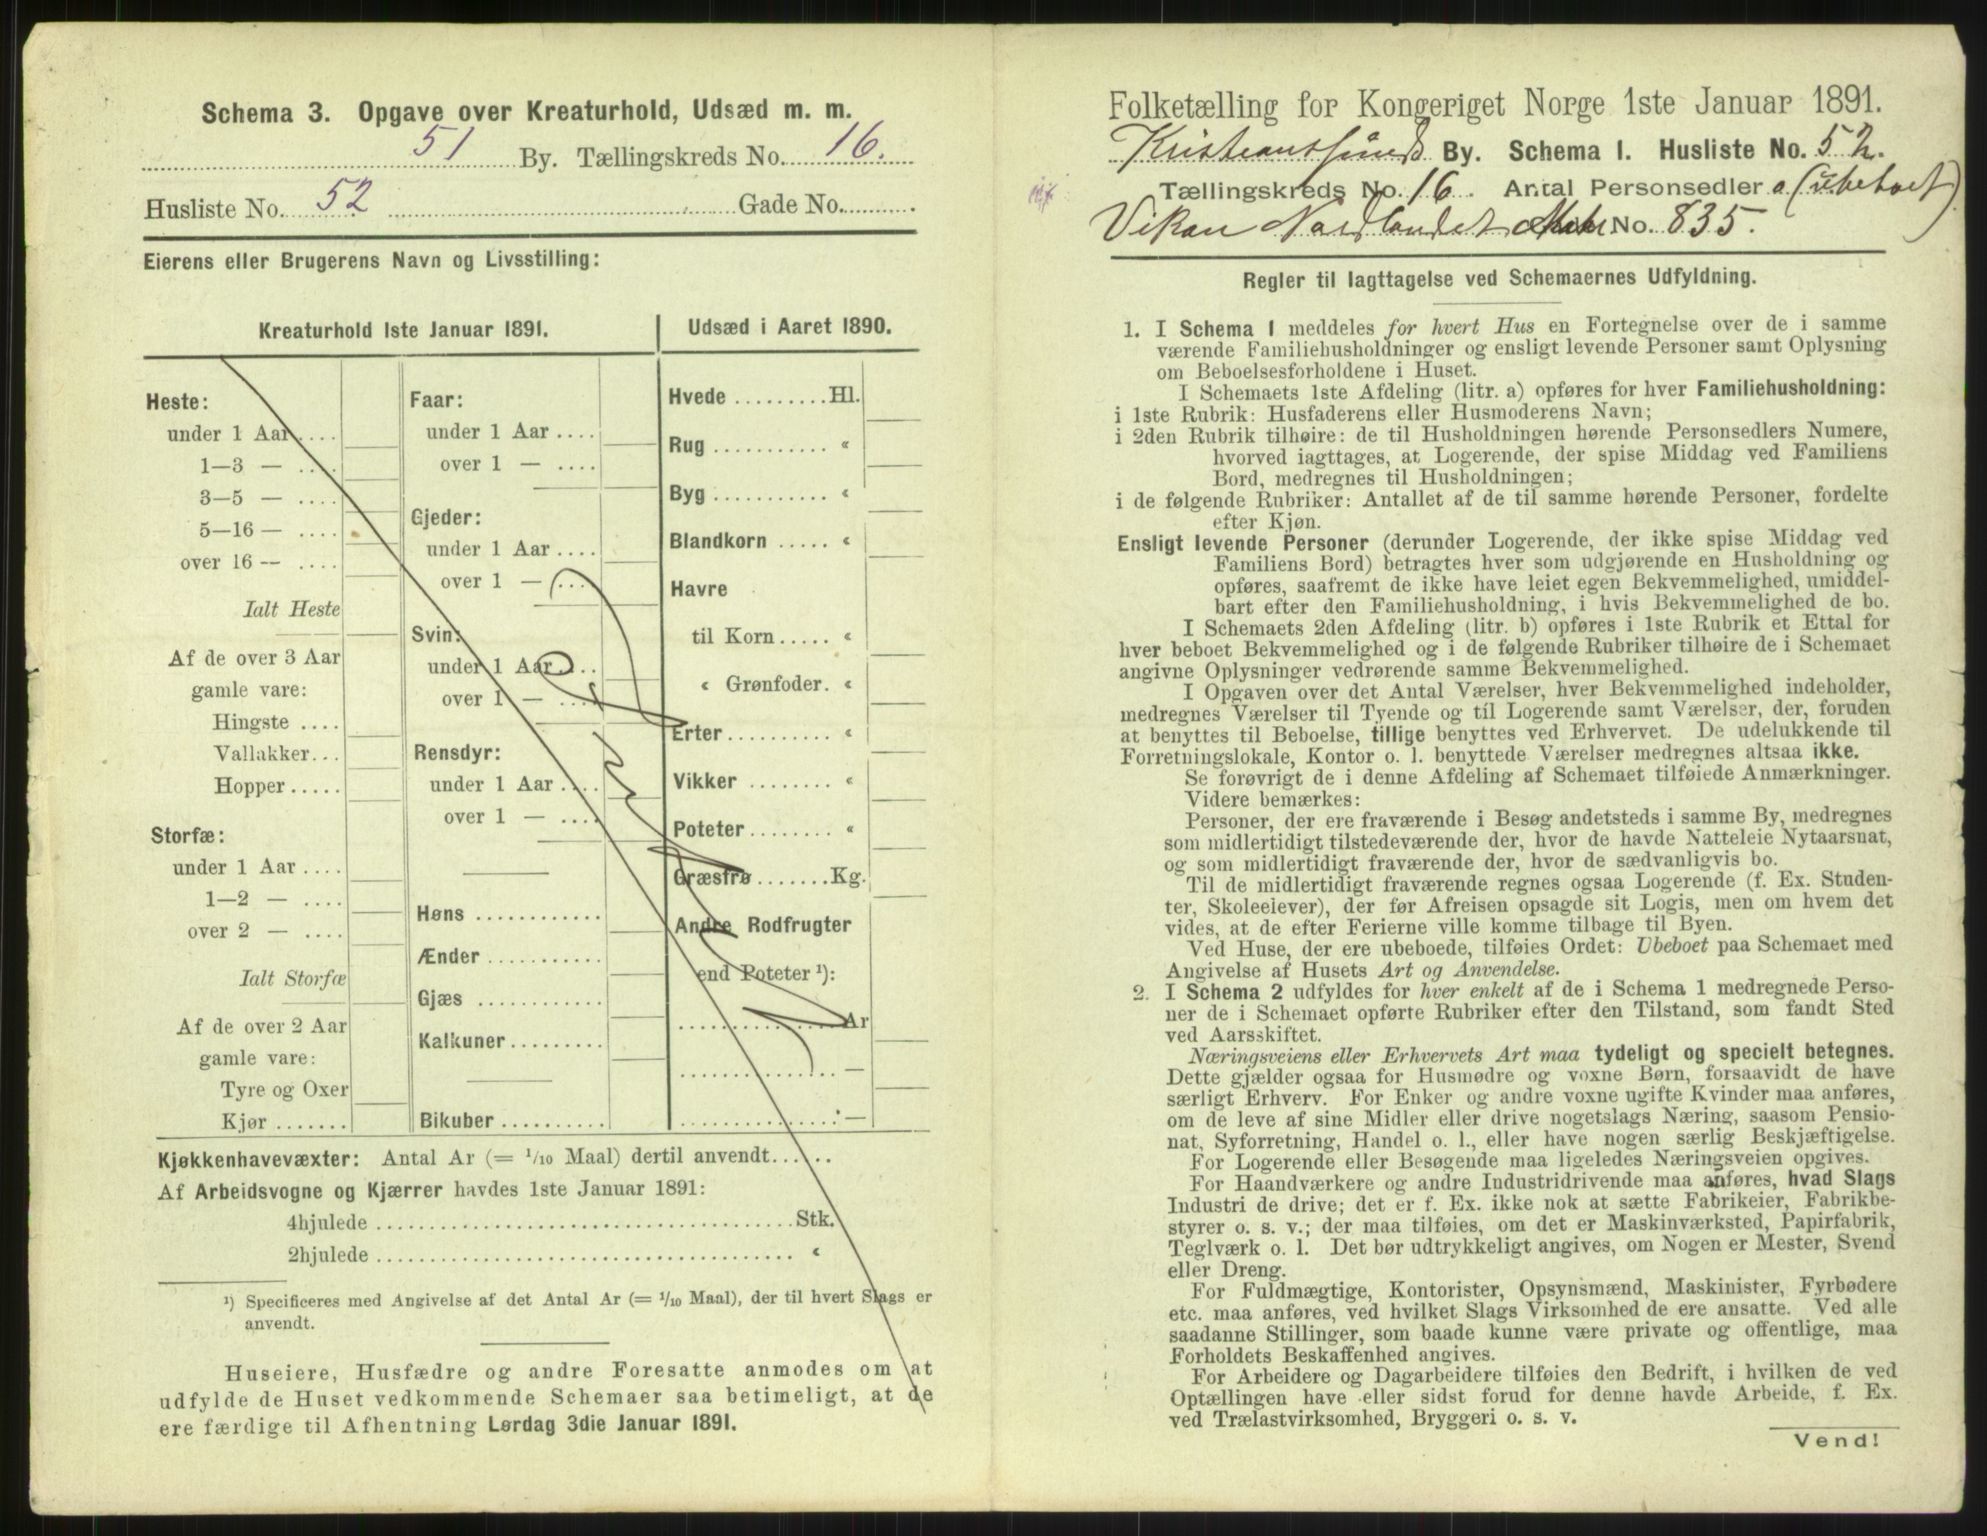 Schema 3. Opgave over Kreaturhold, Udsæd m. m.
51 By. Tællingskreds No. 16.
Husliste No. 52 Gade No.
Eierens eller Brugerens Navn og Livsstilling:
Kreaturhold 1ste Januar 1891.
Heste:
under 1 Aar....
1—3 — ....
3—5 — ....
5—16 — ....
over 16 — ....
Ialt Heste
Af de over 3 Aar
gamle vare:
Hingste ....
Vallakker...
Hopper.....
Storfæ:
under 1 Aar....
1—2 — ....
over 2 — ....
Ialt Storfæ
Af de over 2 Aar
gamle vare:
Tyre og Oxer
Kjør .......
Faar:
under 1 Aar ....
over 1 — ....
Gjeder:
under 1 Aar ....
over 1 — ....
Svin:
under 1 Aar ....
over 1 — ....
Rensdyr:
under 1 Aar ....
over 1 — ....
Høns ............
Ænder ...........
Gjæs ............
Kalkuner.........
Bikuber ..........
Udsæd i Aaret 1890.
Hvede .........Hl.
Rug ........... «
Byg ........... «
Blandkorn ..... «
Havre
til Korn ..... «
« Grønfoder. «
Erter.......... «
Vikker ........ «
Poteter........ «
Græsfrø.......Kg.
Andre Rodfrugter
end Poteter ¹):
...............Ar
............... —
............... —
Kjøkkenhavevæxter: Antal Ar (= 1/10 Maal) dertil anvendt......
Af Arbeidsvogne og Kjærrer havdes 1ste Januar 1891:
4hjulede ....................................Stk.
2hjulede .................................... «
¹) Specificeres med Angivelse af det Antal Ar (= 1/10 Maal), der til hvert Slags er
anvendt.
Huseiere, Husfædre og andre Foresatte anmodes om at
udfylde de Huset vedkommende Schemaer saa betimeligt, at de
ere færdige til Afhentning Lørdag 3die Januar 1891.
Folketælling for Kongeriget Norge 1ste Januar 1891.
Kristianssund By. Schema 1. Husliste No. 52.
Tællingskreds No. 16. Antal Personsedler 0 (ubeboet)
Vikan Nordlandet Matr No. 835.
Regler til Iagttagelse ved Schemaernes Udfyldning.
1. I Schema 1 meddeles for hvert Hus en Fortegnelse over de i samme
værende Familiehusholdninger og ensligt levende Personer samt Oplysning
om Beboelsesforholdene i Huset.
I Schemaets 1ste Afdeling (litr. a) opføres for hver Familiehusholdning:
i 1ste Rubrik: Husfaderens eller Husmoderens Navn;
i 2den Rubrik tilhøire: de til Husholdningen hørende Personsedlers Numere,
hvorved iagttages, at Logerende, der spise Middag ved Familiens
Bord, medregnes til Husholdningen;
i de følgende Rubriker: Antallet af de til samme hørende Personer, fordelte
efter Kjøn.
Ensligt levende Personer (derunder Logerende, der ikke spise Middag ved
Familiens Bord) betragtes hver som udgjørende en Husholdning og
opføres, saafremt de ikke have leiet egen Bekvemmelighed, umiddel-
bart efter den Familiehusholdning, i hvis Bekvemmelighed de bo.
I Schemaets 2den Afdeling (litr. b) opføres i 1ste Rubrik et Ettal for
hver beboet Bekvemmelighed og i de følgende Rubriker tilhøire de i Schemaet
angivne Oplysninger vedrørende samme Bekvemmelighed.
I Opgaven over det Antal Værelser, hver Bekvemmelighed indeholder,
medregnes Værelser til Tyende og til Logerende samt Værelser, der, foruden
at benyttes til Beboelse, tillige benyttes ved Erhvervet. De udelukkende til
Forretningslokale, Kontor o. l. benyttede Værelser medregnes altsaa ikke.
Se forøvrigt de i denne Afdeling af Schemaet tilføiede Anmærkninger.
Videre bemærkes:
Personer, der ere fraværende i Besøg andetsteds i samme By, medregnes
som midlertidigt tilstedeværende der, hvor de havde Natteleie Nytaarsnat,
og som midlertidigt fraværende der, hvor de sædvanligvis bo.
Til de midlertidigt fraværende regnes ogsaa Logerende (f. Ex. Studen-
ter, Skoleelever), der før Afreisen opsagde sit Logis, men om hvem det
vides, at de efter Ferierne ville komme tilbage til Byen.
Ved Huse, der ere ubeboede, tilføies Ordet: Ubeboet paa Schemaet med
Angivelse af Husets Art og Anvendelse.
2. I Schema 2 udfyldes for hver enkelt af de i Schema 1 medregnede Perso-
ner de i Schemaet opførte Rubriker efter den Tilstand, som fandt Sted
ved Aarsskiftet.
Næringsveiens eller Erhvervets Art maa tydeligt og specielt betegnes.
Dette gjælder ogsaa for Husmødre og voxne Børn, forsaavidt de have
særligt Erhverv. For Enker og andre voxne ugifte Kvinder maa anføres,
om de leve af sine Midler eller drive nogetslags Næring, saasom Pensio-
nat, Syforretning, Handel o. l., eller have nogen særlig Beskjæftigelse.
For Logerende eller Besøgende maa ligeledes Næringsveien opgives.
For Haandværkere og andre Industridrivende maa anføres, hvad Slags
Industri de drive; det er f. Ex. ikke nok at sætte Fabrikeier, Fabrikbe-
styrer o. s. v.; der maa tilføies, om det er Maskinværksted, Papirfabrik,
Teglværk o. l. Det bør udtrykkeligt angives, om Nogen er Mester, Svend
eller Dreng.
For Fuldmægtige, Kontorister, Opsynsmænd, Maskinister, Fyrbødere
etc. maa anføres, ved hvilket Slags Virksomhed de ere ansatte. Ved alle
saadanne Stillinger, som baade kunne være private og offentlige, maa
Forholdets Beskaffenhed angives.
For Arbeidere og Dagarbeidere tilføies den Bedrift, i hvilken de ved
Optællingen have eller sidst forud for denne havde Arbeide, f. Ex.
ved Trælastvirksomhed, Bryggeri o. s. v.
Vend!